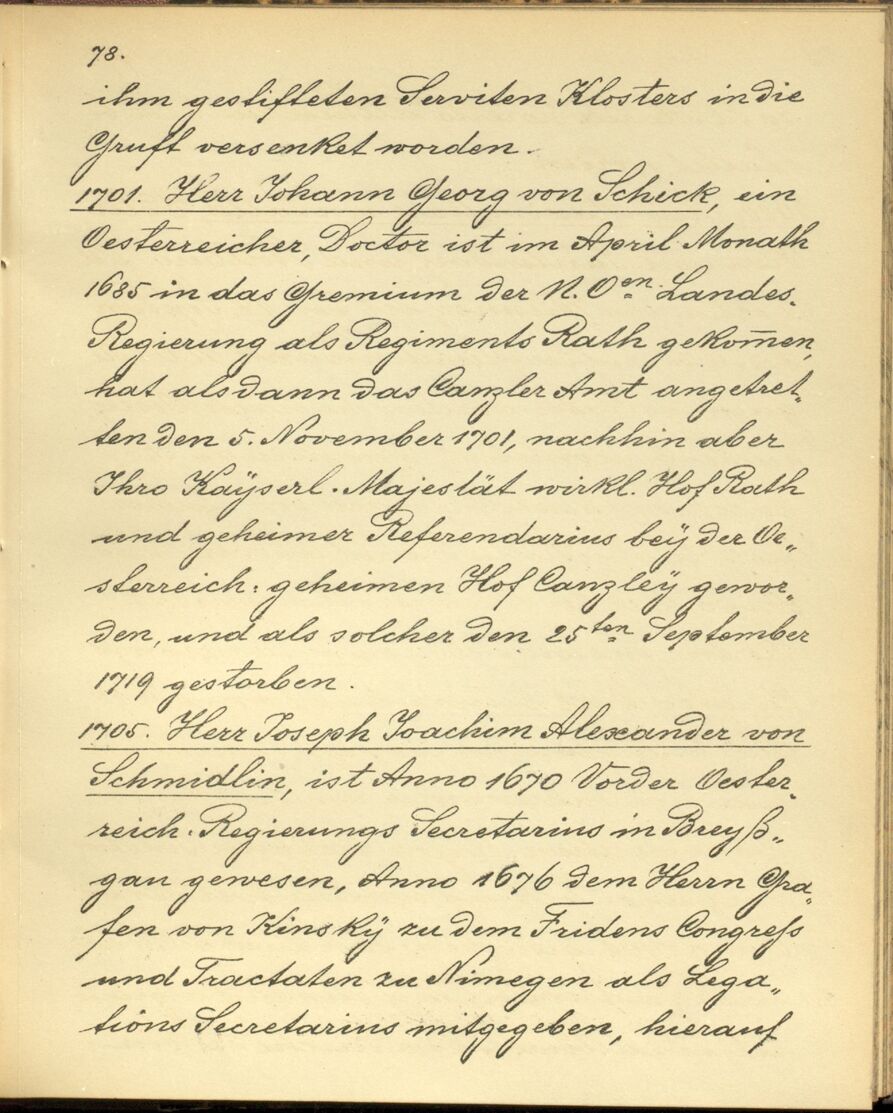 78.
ihm gestiffteten Serviten Klosters in die
Gruft versenket worden.
1701. Herr Johann Georg von Schick, ein
Oesterreicher, Doctor ist im April Monath
1685 in das Gremium der N. Oen. Landes-
Regierung als Regiments Rath gekom̄en,
hat alsdann das Canzler Amt angetret„
ten den 5. November 1701, nachhin aber
Ihro Kaÿserl. Majestät wirkl. Hof Rath
und geheimer Referendarius beÿ der Oe„
sterreich: geheimen Hof Canzleÿ gewor„
den, und als solcher den 25ten September
1719 gestorben.
1705. Herr Joseph Joachim Alexander von
Schmidlin, ist Anno 1670 Vorder Oester„
reich. Regierungs Secretarius in Breyß„
gau gewesen, Anno 1676 dem Herrn Gra„
fen von Kinskÿ zu dem Fridens Congreß
und Tractaten zu Nimegen als Lega„
tions Secretarius mitgegeben, hierauf